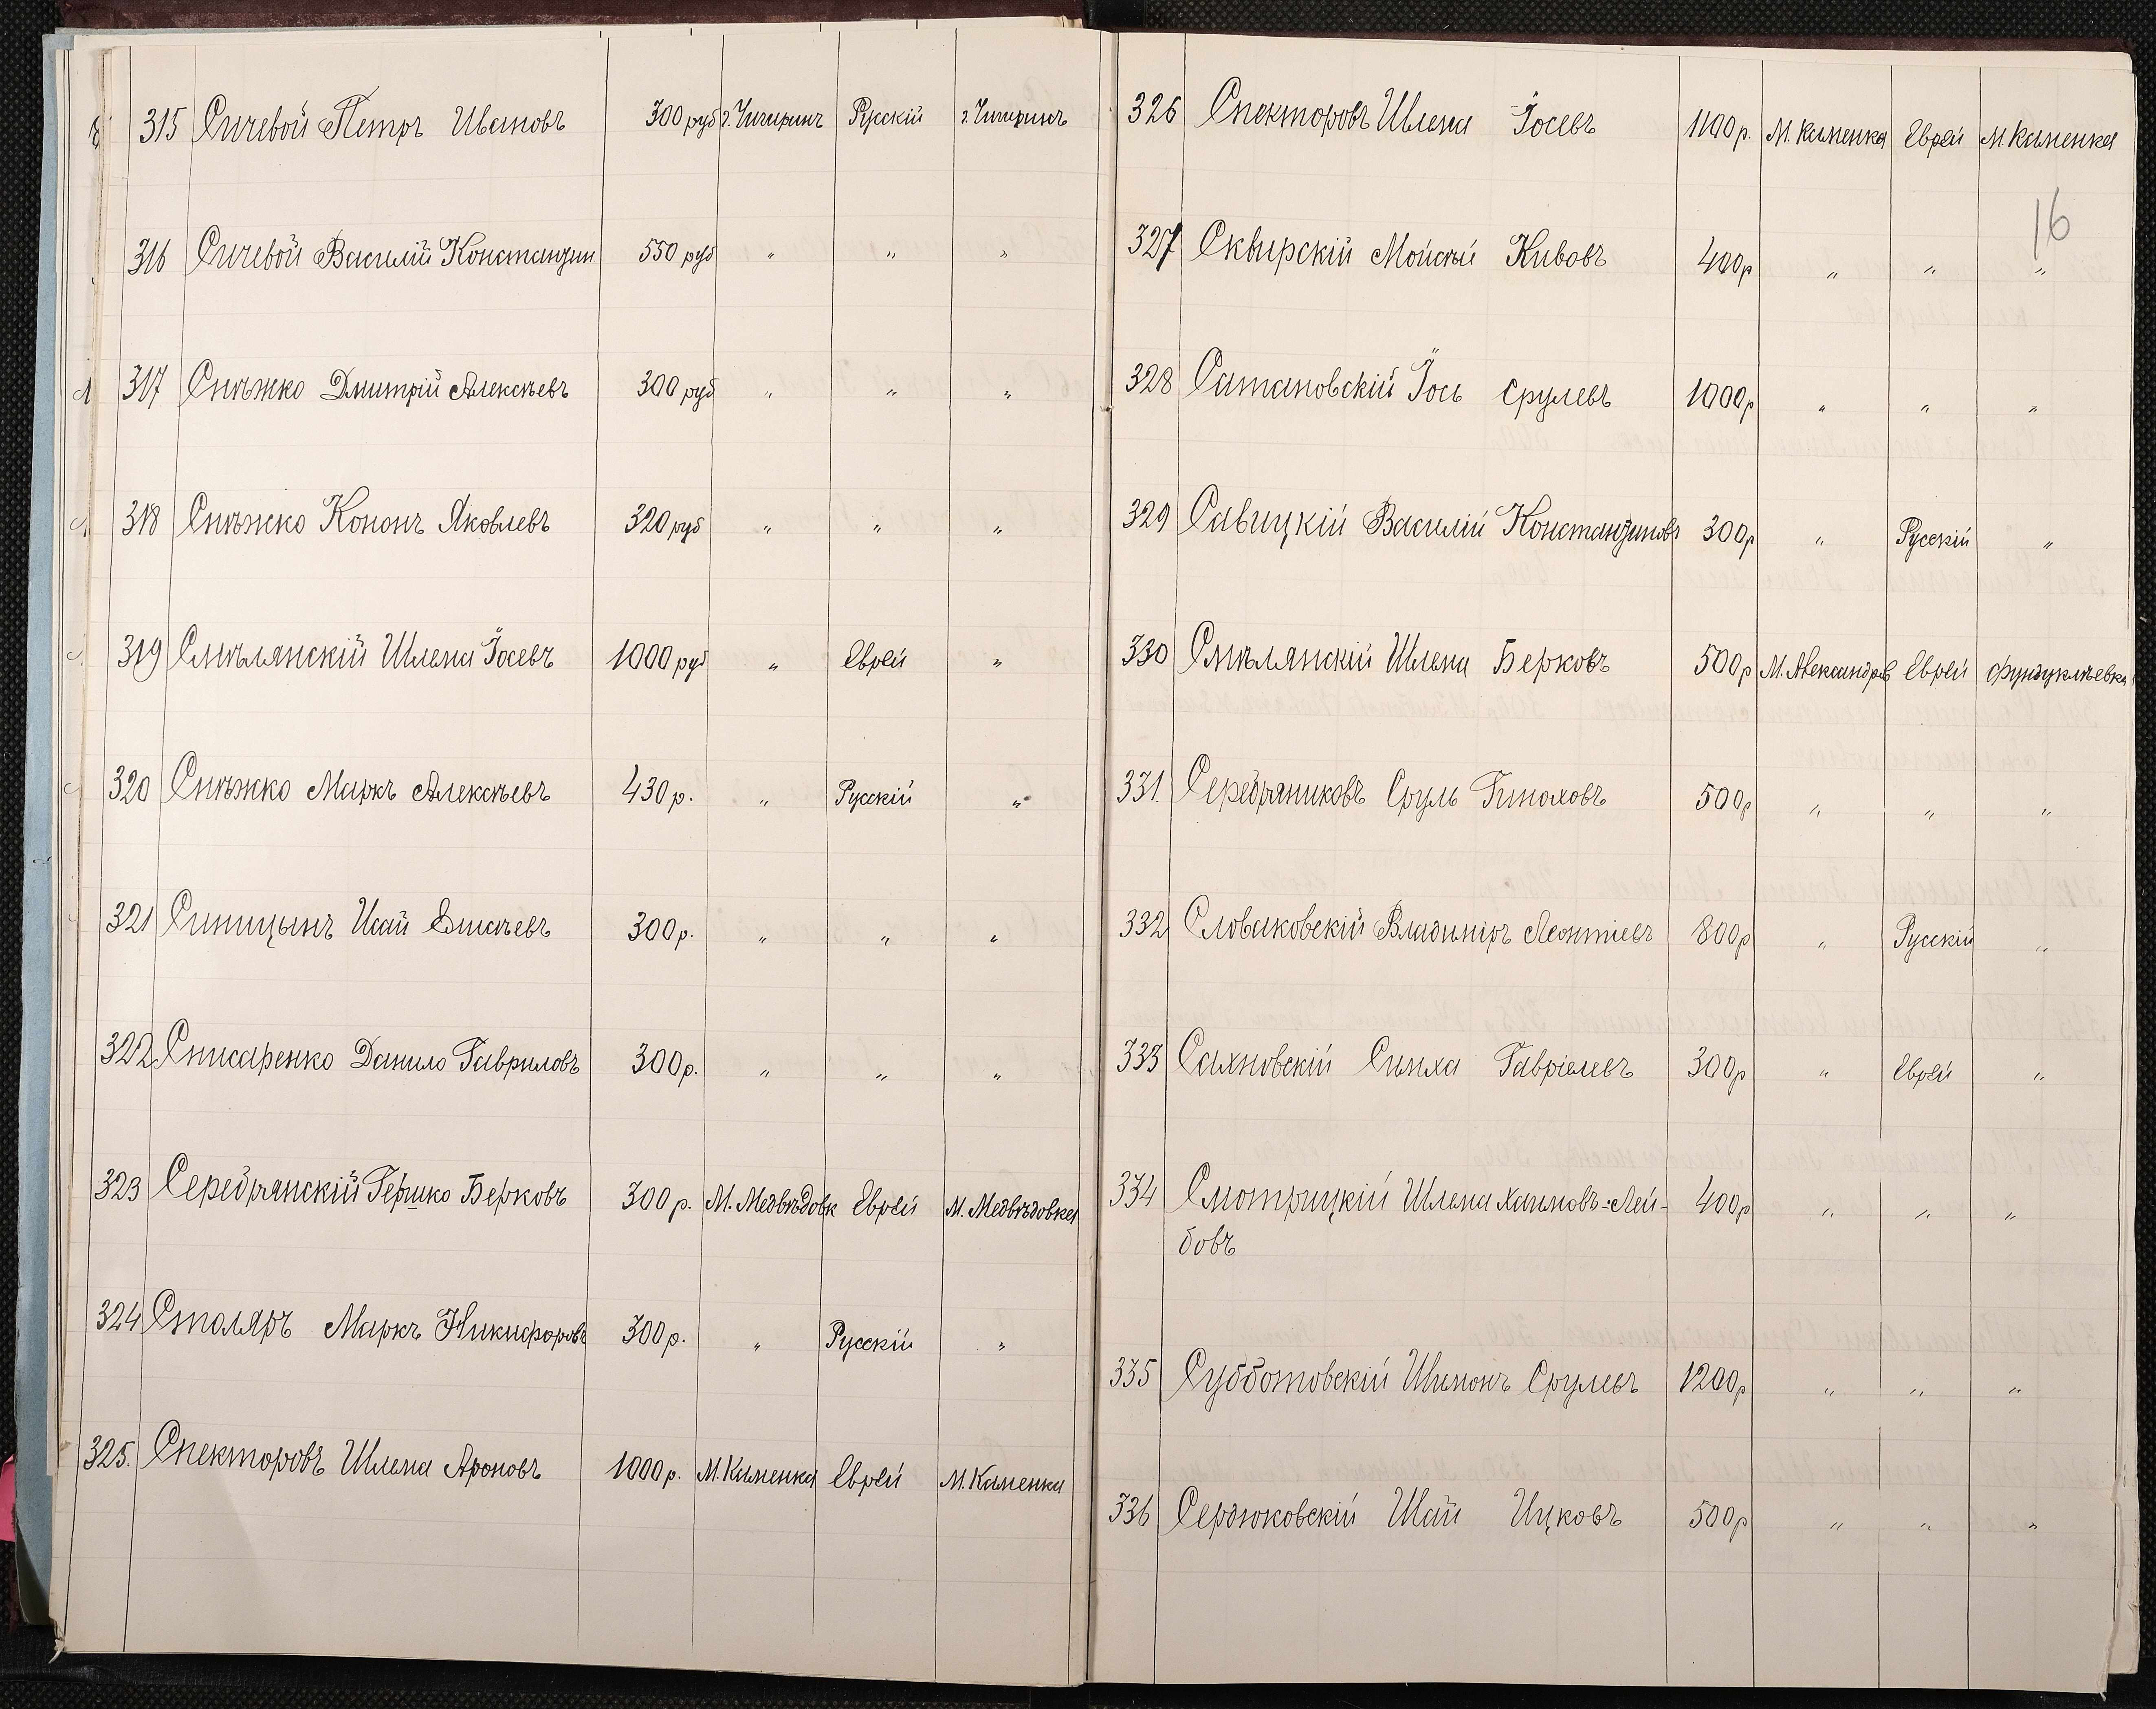 315 Сичевой Петръ Ивановъ 300 руб г. Чигиринъ Русскій г. Чигиринъ
316 Сичевой Василій Константин 550 руб " " "
317 Снѣжко Дмитрій Алексѣевъ 300 руб " " "
318 Снѣжко Кононъ Яковлевъ 320 руб " " "
319 Смѣлянскій Шлема Іосевъ 1000 руб " Еврей "
320 Снѣжко Маркъ Алексѣевъ 430 р. " Русскій "
321 Синицынъ Исай Елисѣевъ 300 р. " " "
322 Списаренко Данило Гавриловъ 300 р. " " "
323 Серебрянскій Гершко Берковъ 300 р. М. Медвѣдовк Еврей М. Медвѣдовка
324 Столяръ Маркъ Никифоровъ 300 р. " Русскій "
325. Спекторовъ Шлема Ароновъ 1000 р. М. Каменка Еврей М. Каменка
326 Спекторовъ Шлема Іосевъ 1100 р. М. Каменка Еврей М. Каменка
16
327 Сквирскій Мойсѣй Кивовъ 400 р " " "
328 Сатановскій Іось Срулевъ 1000 р " " "
329 Савицкій Василій Константиновъ 300 р " Русскій "
330 Смѣлянскій Шлема Берковъ 500 р М. Александров Еврей Фундуклѣевка
331. Серебряниковъ Сруль Гиноховъ 500 р " " "
332 Словаковскій Владиміръ Леонтіевъ 800 р " Русскій "
333 Сахновскій Симха Гавріелевъ 300 р " Еврей "
334 Смотрицкій Шлема Хаимовъ-Лей- 400 р " " "
бовъ
335 Субботовскій Шимонъ Срулевъ 1200 р " " "
336 Сердюковскій Шай Ицковъ 500 р " " "